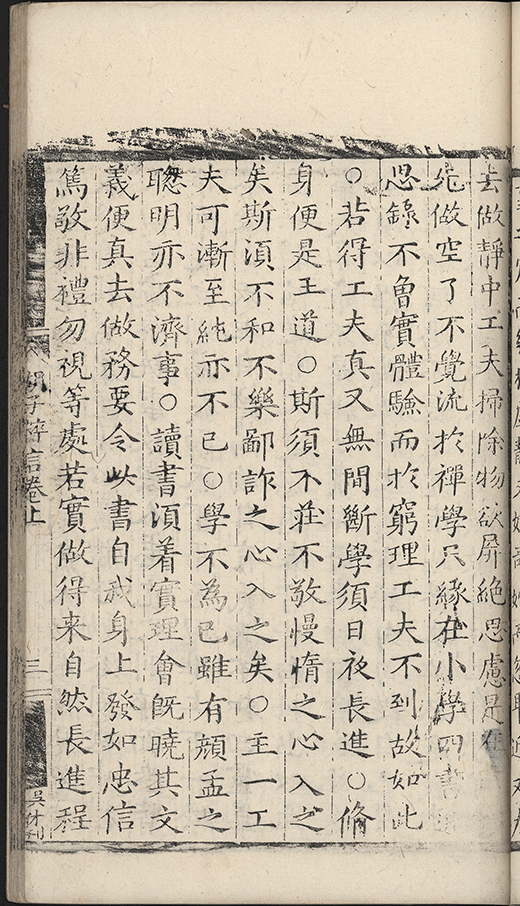 去做靜中工夫掃除物欲屏絶思慮是在
先做空了不覺流於禪學只緣在小學四書
思錄不曾實體驗而於窮理工夫不到故如此
○若得工夫真又無間斷學須日夜長進○脩
身便是王道○斯須不莊不敬慢惰之心入之
矣斯須不和不樂鄙詐之心入之矣○主一工
夫可漸至純亦不已○學不為己雖有顔孟之
聰明亦不濟事○讀書須着實理會旣曉其文
義便真去做務要令此書自我身上發如忠信
篤敬非禮勿視等處若實做得来自然長進程
胡子粹言卷上 三